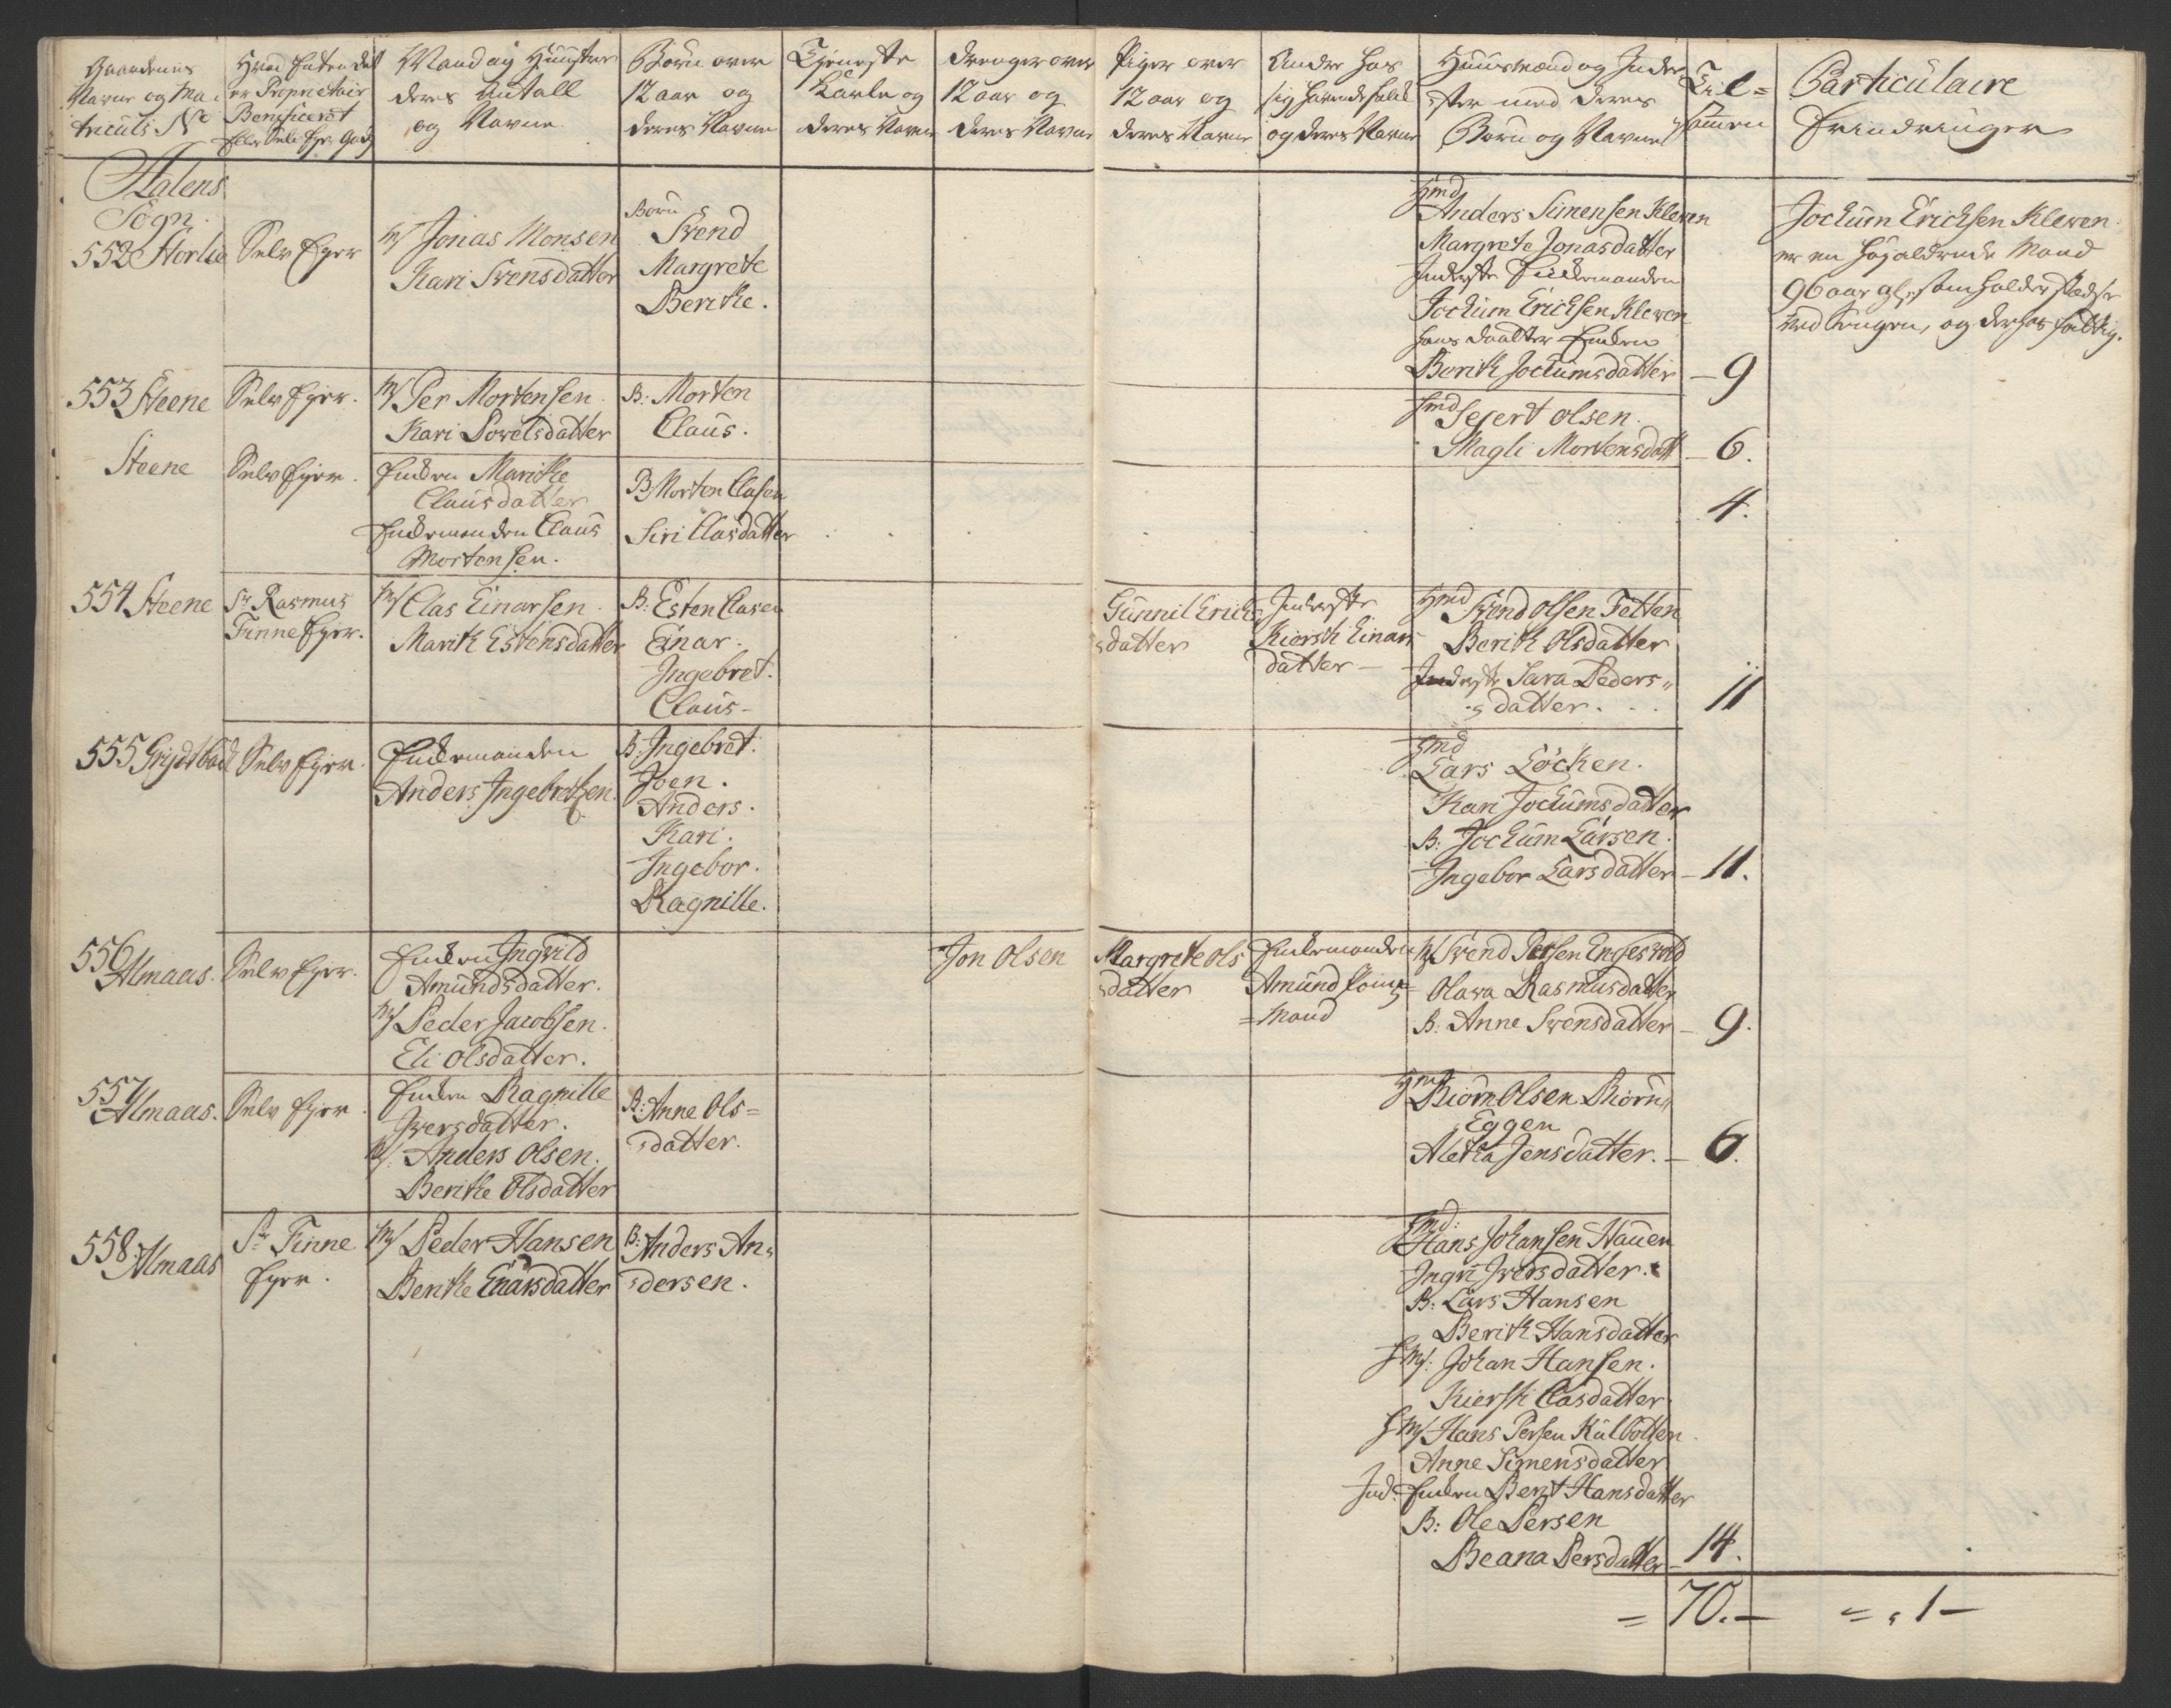 Gaardenes
Navne og Ma-
triculs No
Hvad Enten det
er Proprietair
Beneficeret
Eller Selv Eyer Gods
Mand og Hüüstrue
deres Antall
og Navne
Börn over
12 aar og
deres Navne
Tieneste
Karle og
deres Navne
drenger over
12 aar og
deres Navne
Piger over
12 aar og
deres Navne
Andre hos
sig havende folck
og deres Navne
Hüüsmænd og Inder
ster med deres
Börn og Navne
Til=
sammen
Particülaire
Erindringer
Aalens
Sogn.
552 Horlia
Selv Eyer
M/ Jonas Monsen
Kari Svensdatter
Börn
Svend
Margrete
Beritke.
Hmd
Anders Simensen Kleven
Margrete Jonasdatter
Inderste Enckemanden
Jochüm Erichsen Kleven
hans daatter Encken
Berith Jochümsdatter
9
Jochüm Erichsen Kleven
er en høyaldrende Mand
96 aar gl. som holder stedse
ved Sengen, og derhos fattig.
553 Steene
Selv Eyer.
M/ Per Mortensen.
Kari Povelsdatter
B: Morten
Claüs.
Hmd Sejert Olsen.
Magli Mortensdatt
6.
Steene
Selv Eyer.
Encken Maritke
Claüsdatter
Enckemanden Claüs
Mortensen.
B Morten Clasen
Siri Clasdatter
4.
554 Steene
Sr Rasmus
Finne Eyer.
M/ Clas Einarsen.
Marith Estensdatter
B: Esten Clasen
Einar.
Ingebret.
Claüs-
Günnil Erichs
datter
Inderste
Kiersti Einars
datter -
Hmd
Svend Olsen Tetten
Berith Olsdatter
Inderste Sara Peders
datter.
11
555 Grydtbad
Selv Eyer.
Enckemanden
Anders Ingebretsen.
B: Ingebret.
Joen.
Anders.
Kari.
Ingebor.
Ragnille.
Hmd
Lars Löcken.
Kari Jochümsdatter
B: Jochüm Larsen.
Ingebor Larsdatter
11.
556
Almaas.
Selv Eyer.
Encken Ingvild
Amündsdatter.
M/ Peder Jacobsen.
Eli Olsdatter.
Jon Olsen
Margrete Ols
datter
Enckemanden
Amünd
Mand
M/ Svend Persen Engesvold
Olava Rasmusdatter
B: Anne Svensdatter
9.
557
Almaas.
Selv Eyer
Encken Ragnille
Iversdatter.
M/ Anders Olsen.
Beritke Olsdatter
B: Anne Ols=
datter.
Hmd
Biörn Olsen Biörn
Eggen
Aletha Jensdatter.
6.
558: Almaas
Sr Finne
Eyer.
M/ Peder Hansen
Beritke Enarsdatter
B: Anders An=
dersen.
Hmd:
Hans Johansen Haüen
Ingri Iversdatter.
B: Lars Hansen
Berith Hansdatter
HM/: Johan Hansen.
Kiersti Clasdatter
HM/ Hans Persen Külbotten
Anne Simensdatter
Ind: Encken Berit Hansdatter
B: Ole Persen
Beana Persdatter
14.
= 70. -
= „ 1 -